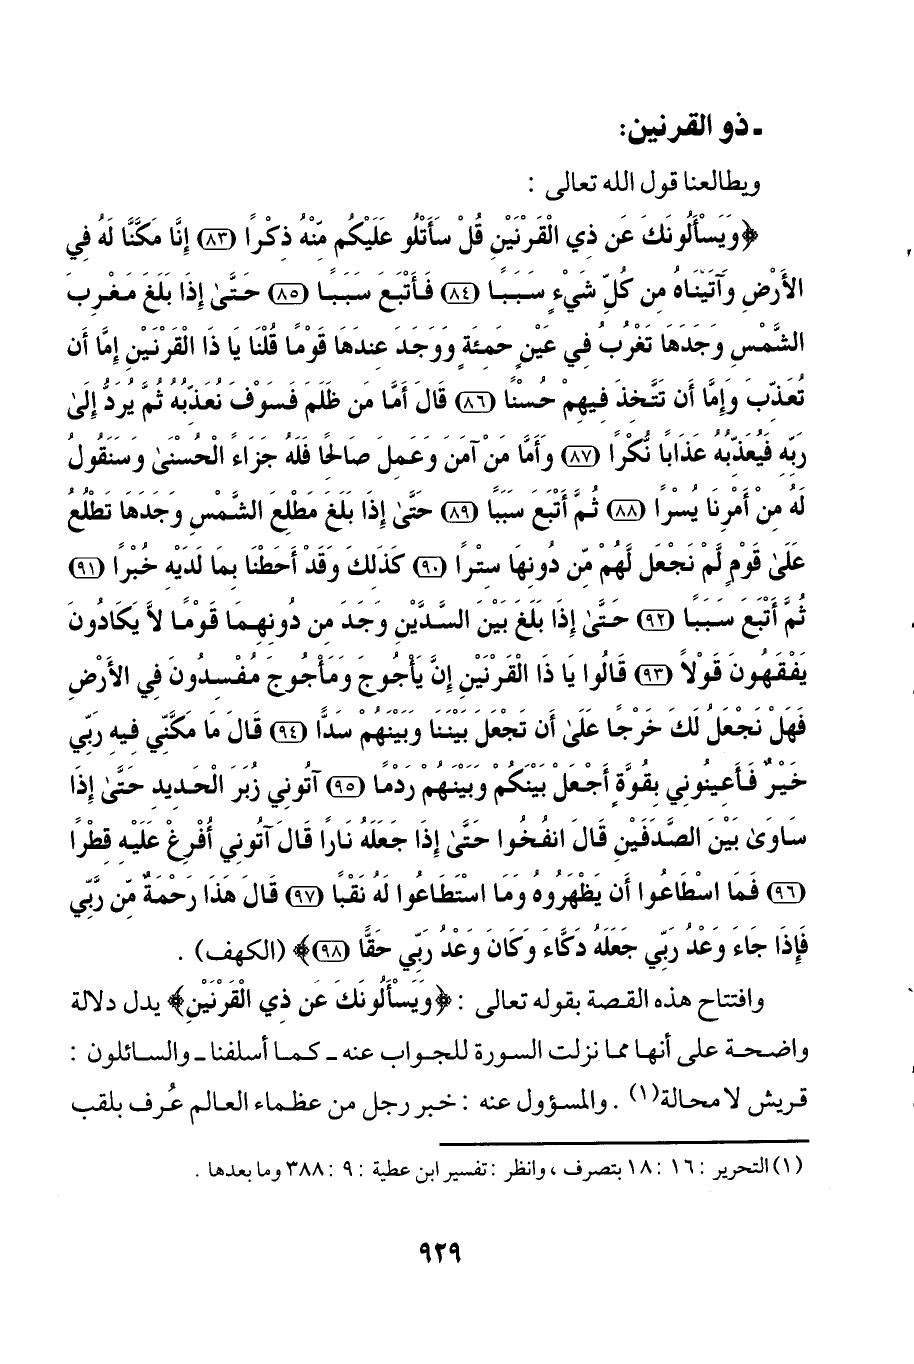 ـ ذو القرنين:
ويطالعنا قول الله تعالى :
﴿وَيَسْأَلُونَكَ عَن ذِي الْقَرْنَيْنِ قُلْ سَأَتْلُو عَلَيْكُم مِّنْهُ ذِكْرًا (٨٣) إِنَّا مَكَّنَّا لَهُ فِي
الأَرْضِ وَآتَيْنَاهُ مِن كُلِّ شَيْءٍ سَبَبًا (٨٤) فَأَتْبَعَ سَبَبًا (٨٥) حَتَّىٰ إِذَا بَلَغَ مَغْرِبَ
الشَّمْسِ وَجَدَهَا تَغْرُبُ فِي عَيْنٍ حَمِئَةٍ وَوَجَدَ عِندَهَا قَوْمًا قُلْنَا يَا ذَا الْقَرْنَيْنِ إِمَّا أَن
تُعَذِّبَ وَإِمَّا أَن تَتَّخِذَ فِيهِمْ حُسْنًا (٨٦) قَالَ أَمَّا مَن ظَلَمَ فَسَوْفَ نُعَذِّبُهُ ثُمَّ يُرَدُّ إِلَىٰ
رَبِّهِ فَيُعَذِّبُهُ عَذَابًا نُّكْرًا (٨٧) وَأَمَّا مَنْ آمَنَ وَعَمِلَ صَالِحًا فَلَهُ جَزَاءً الْحُسْنَىٰ وَسَنَقُولُ
لَهُ مِنْ أَمْرِنَا يُسْرًا (٨٨) ثُمَّ أَتْبَعَ سَبَبًا (٨٩) حَتَّىٰ إِذَا بَلَغَ مَطْلِعَ الشَّمْسِ وَجَدَهَا تَطْلُعُ
عَلَىٰ قَوْمٍ لَّمْ نَجْعَل لَّهُمْ مِّن دُونِهَا سِتْرًا (٩٠) كَذَلِكَ وَقَدْ أَحَطْنَا بِمَا لَدَيْهِ خُبْرًا (٩١)
ثُمَّ أَتْبَعَ سَبَبًا (٩٢) حَتَّىٰ إِذَا بَلَغَ بَيْنَ السَّدَّيْنِ وَجَدَ مِن دُونِهِمَا قَوْمًا لاَّ يَكَادُونَ
يَفْقَهُونَ قَوْلاً (٩٣) قَالُوا يَا ذَا الْقَرْنَيْنِ إِنَّ يَأْجُوجَ وَمَأْجُوجَ مُفْسِدُونَ فِي الأَرْضِ
فَهَلْ نَجْعَلُ لَكَ خَرْجًا عَلَىٰ أَن تَجْعَلَ بَيْنَنَا وَبَيْنَهُمْ سَدًّا (٩٤) قَالَ مَا مَكَّنِّي فِيهِ رَبِّي
خَيْرٌ فَأَعِينُونِي بِقُوَّةٍ أَجْعَلْ بَيْنَكُمْ وَبَيْنَهُمْ رَدْمًا (٩٥) آتُونِي زُبَرَ الْحَدِيدِ حَتَّىٰ إِذَا
سَاوَىٰ بَيْنَ الصَّدَفَيْنِ قَالَ انفُخُوا حَتَّىٰ إِذَا جَعَلَهُ نَارًا قَالَ آتُونِي أُفْرِغْ عَلَيْهِ قِطْرًا
(٩٦) فَمَا اسْطَاعُوا أَن يَظْهَرُوهُ وَمَا اسْتَطَاعُوا لَهُ نَقْبًا (٩٧) قَالَ هَذَا رَحْمَةٌ مِّن رَّبِّي
فَإِذَا جَاءَ وَعْدُ رَبِّي جَعَلَهُ دَكَّاءَ وَكَانَ وَعْدُ رَبِّي حَقًّا (٩٨)﴾ (الكهف) .
وافتتاح هذه القصة بقوله تعالى : ﴿وَيَسْأَلُونَكَ عَن ذِي الْقَرْنَيْنِ﴾ يدل دلالة
واضحة على أنها مما نزلت السورة للجواب عنه ـ كما أسلفنا ـ والسائلون :
قريش لا محالة(١) . والمسؤول عنه : خبر رجل من عظماء العالم عُرف بلقب
(١) التحرير : ١٦ : ١٨ بتصرف ، وانظر : تفسير ابن عطية : ٩ : ٣٨٨ وما بعدها .
٩٢٩